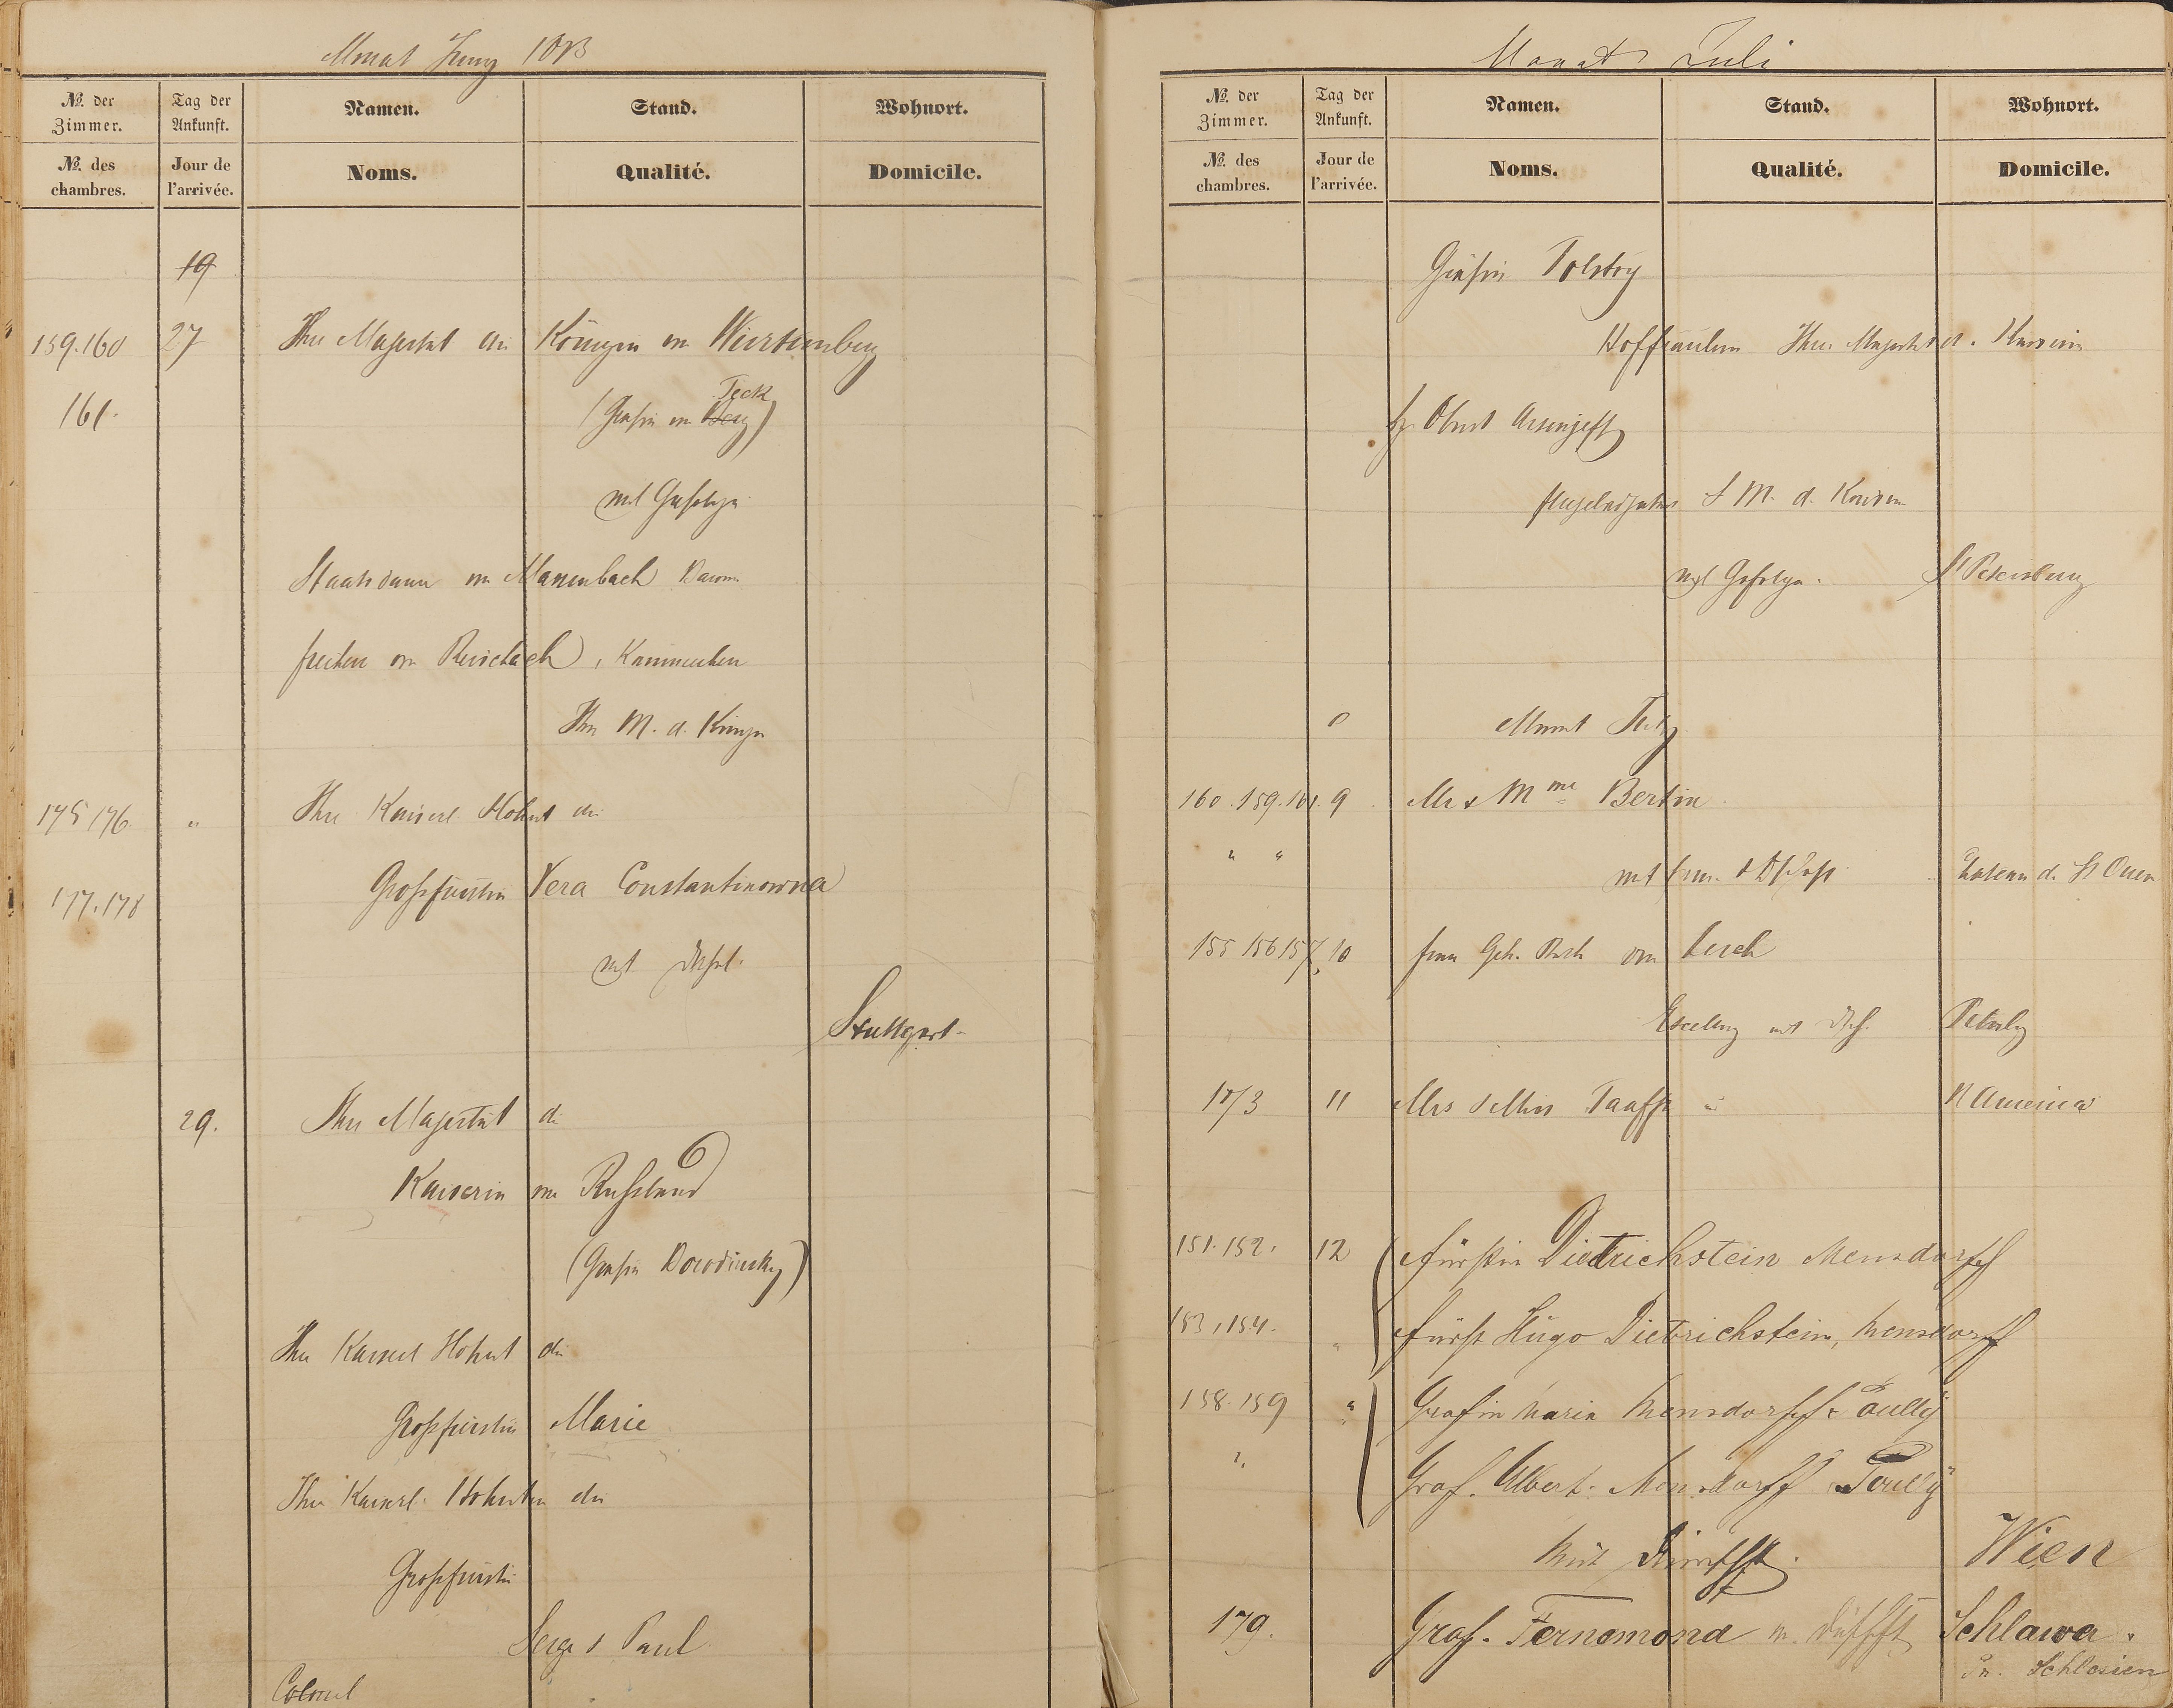 Monat Juny 1873
№. der Zimmer.
Tag der Ankunft.
Namen.
Stand.
Wohnort.
№. des chambres.
Jour de l'arrivée.
Noms.
Qualité.
Domicile.
19
159.160 27 Ihre Majestät die Königin von Württemberg
161. (Gräfin von Berg) Teck
mit Gefolge
Staatsdame von Massenbach Baronin
Freiherr von Reischach, Kammerherr
Ihrer M. d. Königin
175 176 " Ihre Kaiserl. Hoheit die
177.178 Großfürstin Vera Constantinowna
mit
Stuttgart
29. Ihre Majestät die
Kaiserin von Rußland
(Gräfin Borodinsky)
Ihre Kaiserl Hoheit die
Großfürstin Marie
Ihre Kaiserl. Hoheiten die
Großfürsten
Serge & Paul
Colonel
Monat Juli
№. der Zimmer.
Tag der Ankunft.
Namen.
Stand.
Wohnort.
№. des chambres.
Jour de l'arrivée.
Noms.
Qualité.
Domicile.
Gräfin Tolstoy
Hoffräulein Ihrer Majestät d. Kaiserin
Oberst
Flügeladjutant S M. d. Kaisers
mit Gefolge. St Petersburg
Monat July
160.159.161. 9 Mr & Mme Bertin
" " mit d. St Ouen
155 156 157. 10 Frau Geh. Rath von Lerch
mit
173 11 Mrs & Miss Taaffe N America
151.152. 12 Fürstin Dietrichstein Mensdorff
153,154. " Fürst Hugo Dietrichstein, Mensdorff
158.159 " Gräfin Maria Mensdorff Pouilly
" Graf. Albert. Mensdorff Pouilly
Mit Wien
179. Graf. Fernemond Schlawa.
Pr. Schlesien